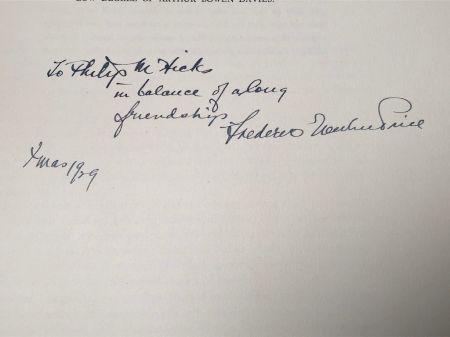 ARTHUR BOWEN DAVIES.
To Philip M Hicks
in balance of a long
friendship
Frederic Newlin Price
Xmas 1929